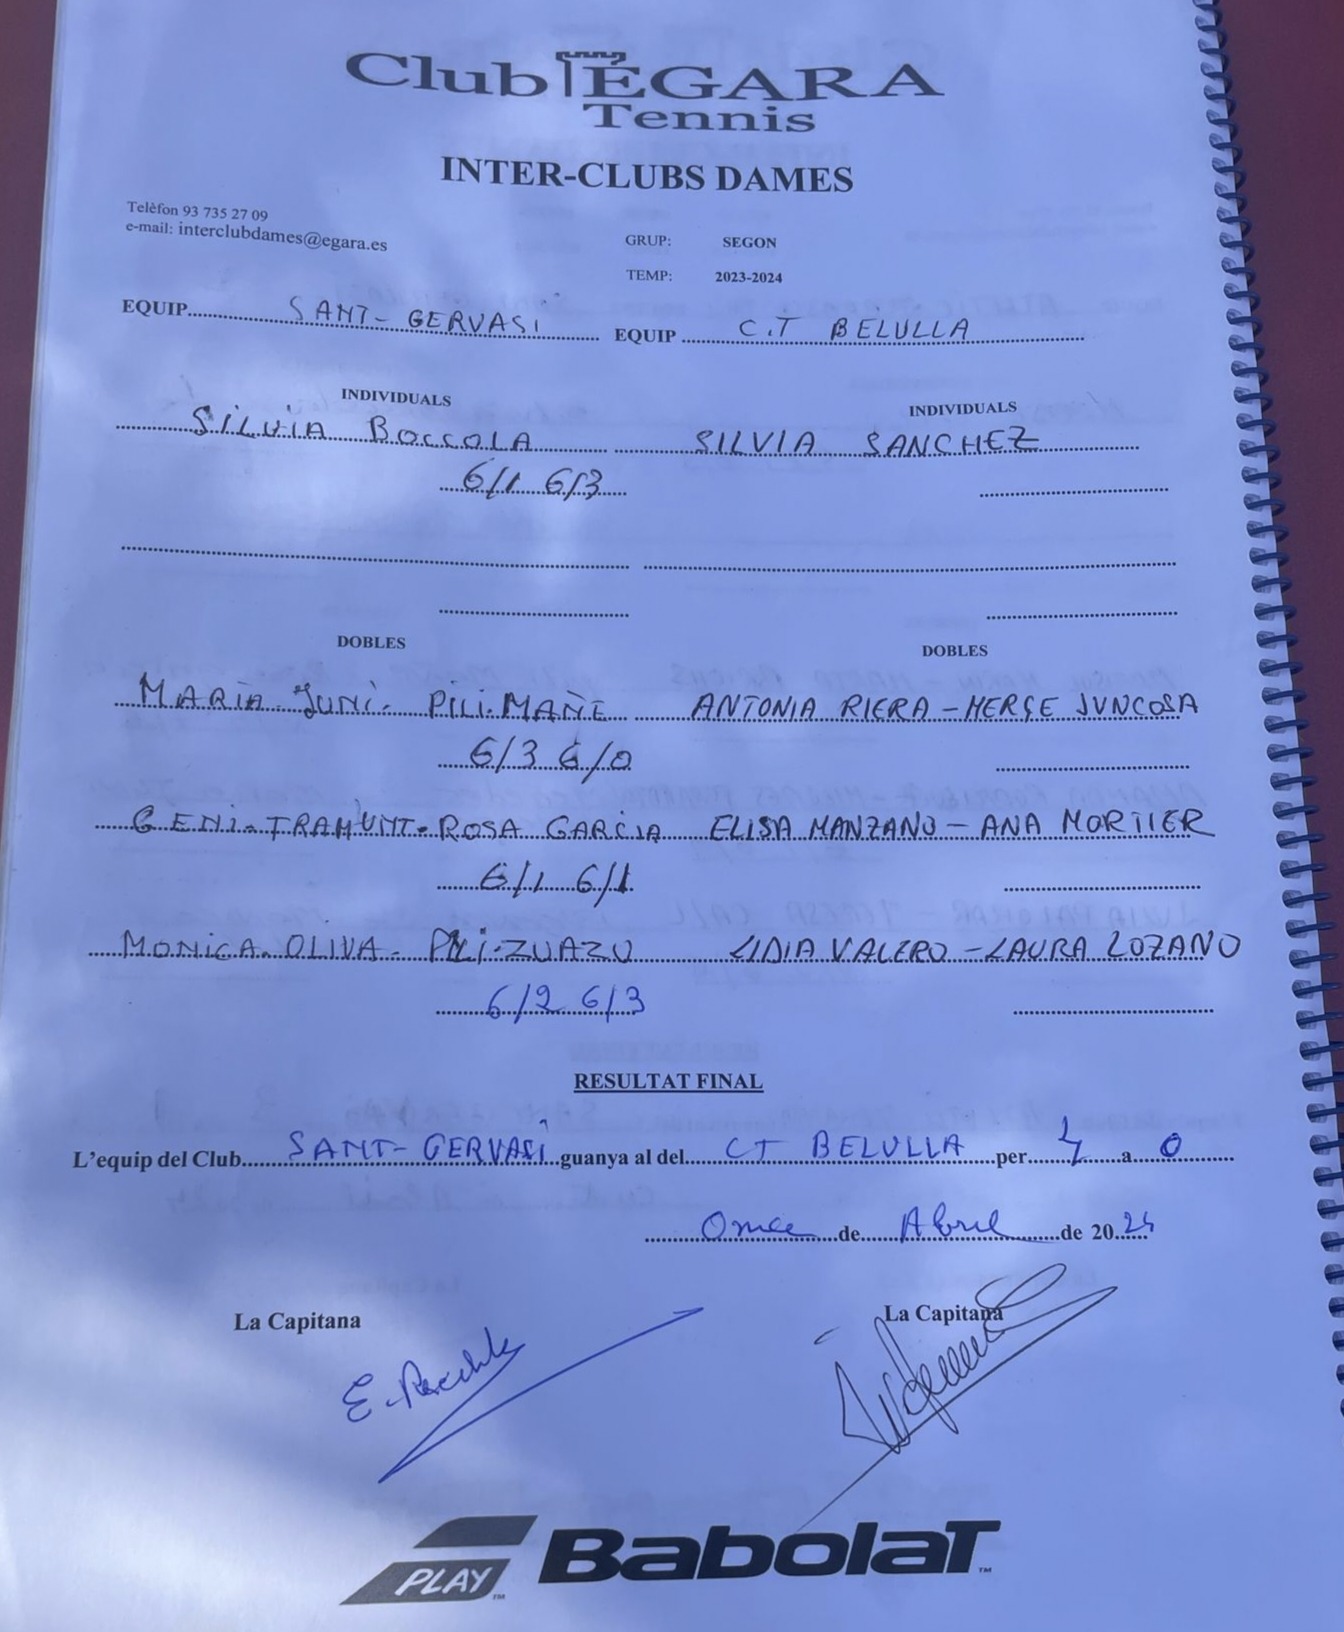 Club EGARA
Tennis
INTER-CLUBS DAMES
Telèfon 93 735 27 09
e-mail: interclubdames@egara.es
GRUP: SEGON
TEMP: 2023-2024
EQUIP SANT-GERVASI EQUIP C.T BELULLA
INDIVIDUALS INDIVIDUALS
SILVIA BOCCOLA SILVIA SANCHEZ
6/1 6/3
DOBLES DOBLES
MARIA JUNI- PILI MAÑE ANTONIA RIERA-MERÇE JUNCOSA
6/3 6/0
GENI-TRAMUNT-ROSA GARCIA ELISA MANZANO-ANA MORTIER
6/1 6/1
MONICA OLIVA- PILI-ZUAZU LIDIA VALERO-LAURA LOZANO
6/2 6/3
RESULTAT FINAL
L'equip del Club SANT-GERVASI guanya al del CT BELULLA per 4 a 0
Onze de Abril de 2024
La Capitana La Capitana
PLAY Babolat